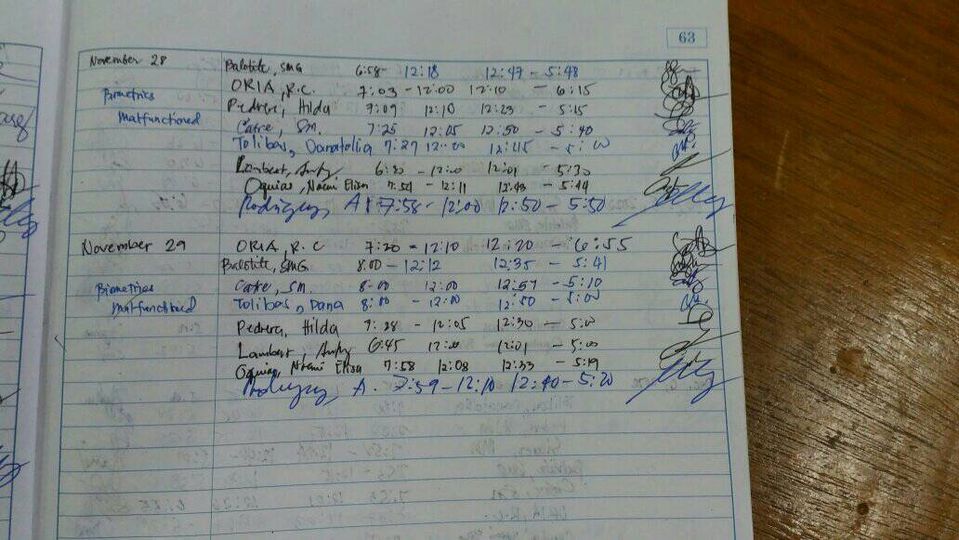 63
November 28 Balotite, SMG 6:58- 12:18 12:47 - 5:48
Biometrics ORIA, R.C. 7:03 - 12:00 12:10 - 6:15
Malfunctioned Pedrera, Hilda 7:09 12:10 12:23 - 5:15
Catre, SM. 7:25 12:05 12:50 - 5:40
Tolibas, Danatolia 7:27 12:00 12:45 - 5:00
Lambert, 6:30 - 12:00 12:01 - 5:30
Oquias, Noemi Elisa 7:54 - 12:11 12:43 - 5:44
Rodriguez, A 7:58 - 12:00 12:50 - 5:50
November 29 ORIA, R.C 7:20 - 12:10 12:20 - 6:55
Balotite, SMG 8:00 - 12:12 12:35 - 5:41
Biometrics Catre, SM. 8:00 12:00 12:57 - 5:10
Malfunctioned Tolibas, Dana 8:00 - 12:00 12:50 - 5:00
Pedrera, Hilda 7:28 - 12:05 12:30 - 5:00
Lambert, 6:45 12:00 12:01 - 5:00
Oquias, Noemi Elisa 7:58 12:08 12:33 - 5:19
Rodriguez, A. 7:59 - 12:10 12:40 - 5:20